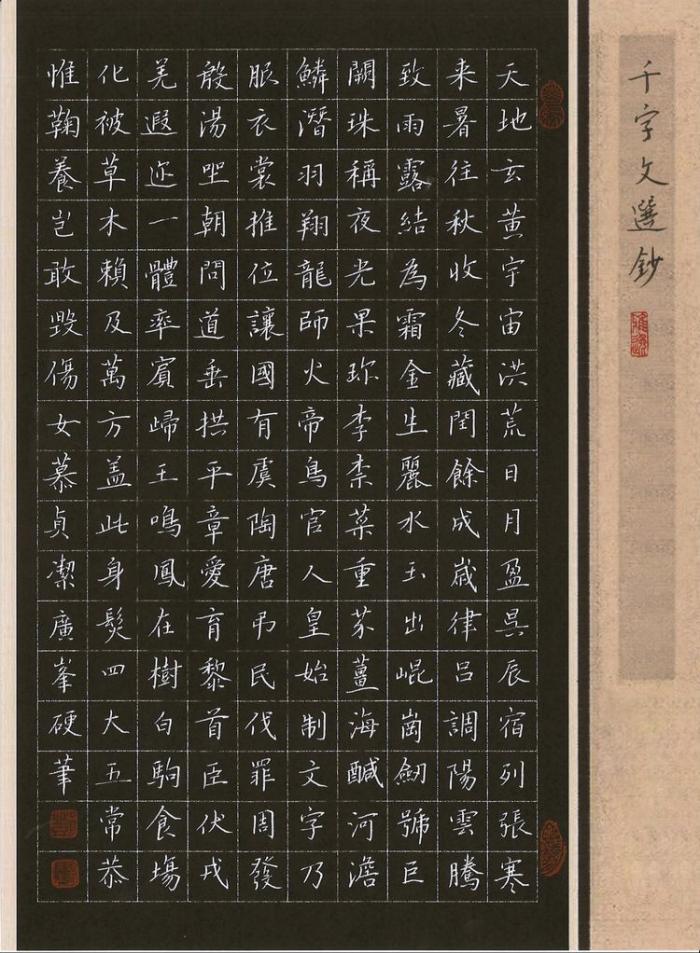 千字文選鈔
天地玄黄宇宙洪荒日月盈昃辰宿列張寒
来暑往秋收冬藏閏餘成歲律呂調陽雲騰
致雨露結為霜金生麗水玉出崐崗劒號巨
闕珠稱夜光果珎李柰菜重芥薑海鹹河澹
鱗潛羽翔龍師火帝鳥官人皇始制文字乃
服衣裳推位讓國有虞陶唐弔民伐罪周發
殷湯坐朝問道垂拱平章愛育黎首臣伏戎
羌遐迩一體率賓歸王鳴鳳在樹白駒食場
化被草木賴及萬方盖此身髮四大五常恭
惟鞠養豈敢毀傷女慕貞潔廣峯硬筆